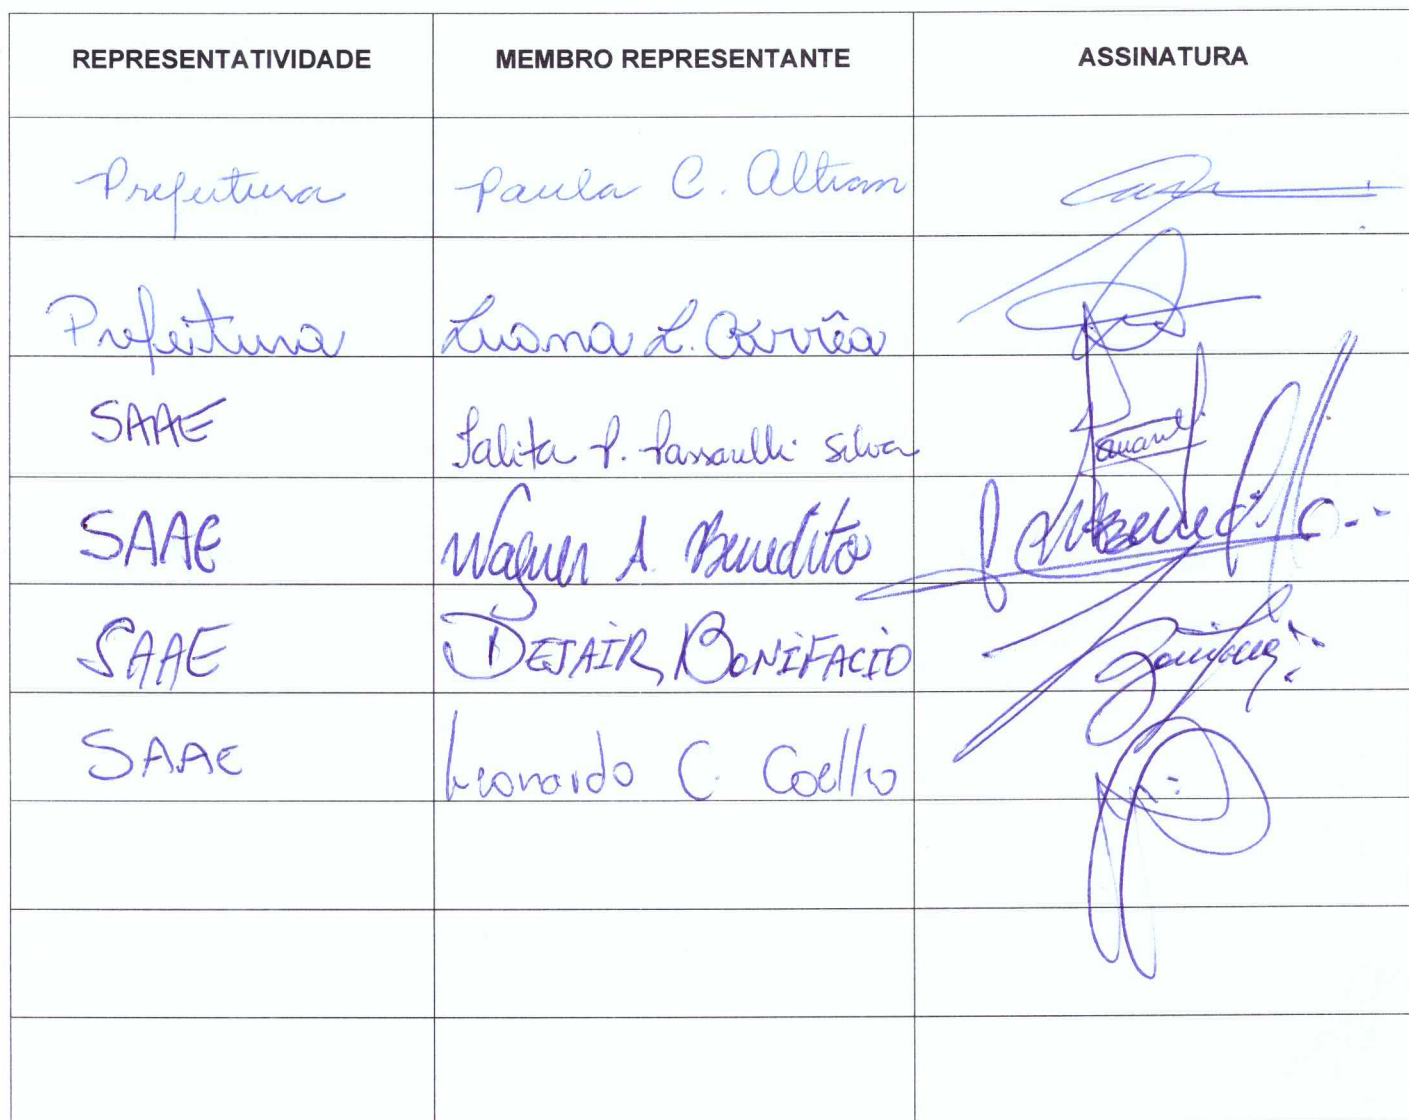 REPRESENTATIVIDADE MEMBRO REPRESENTANTE ASSINATURA
Prefeitura Paula C. Altran
Prefeitura Luana L. Corrêa
SAAE Talita P. Passarelli Silva
SAAE Wagner A. Benedito
SAAE DEJAIR BONIFACIO
SAAE Leonardo C. Coelho